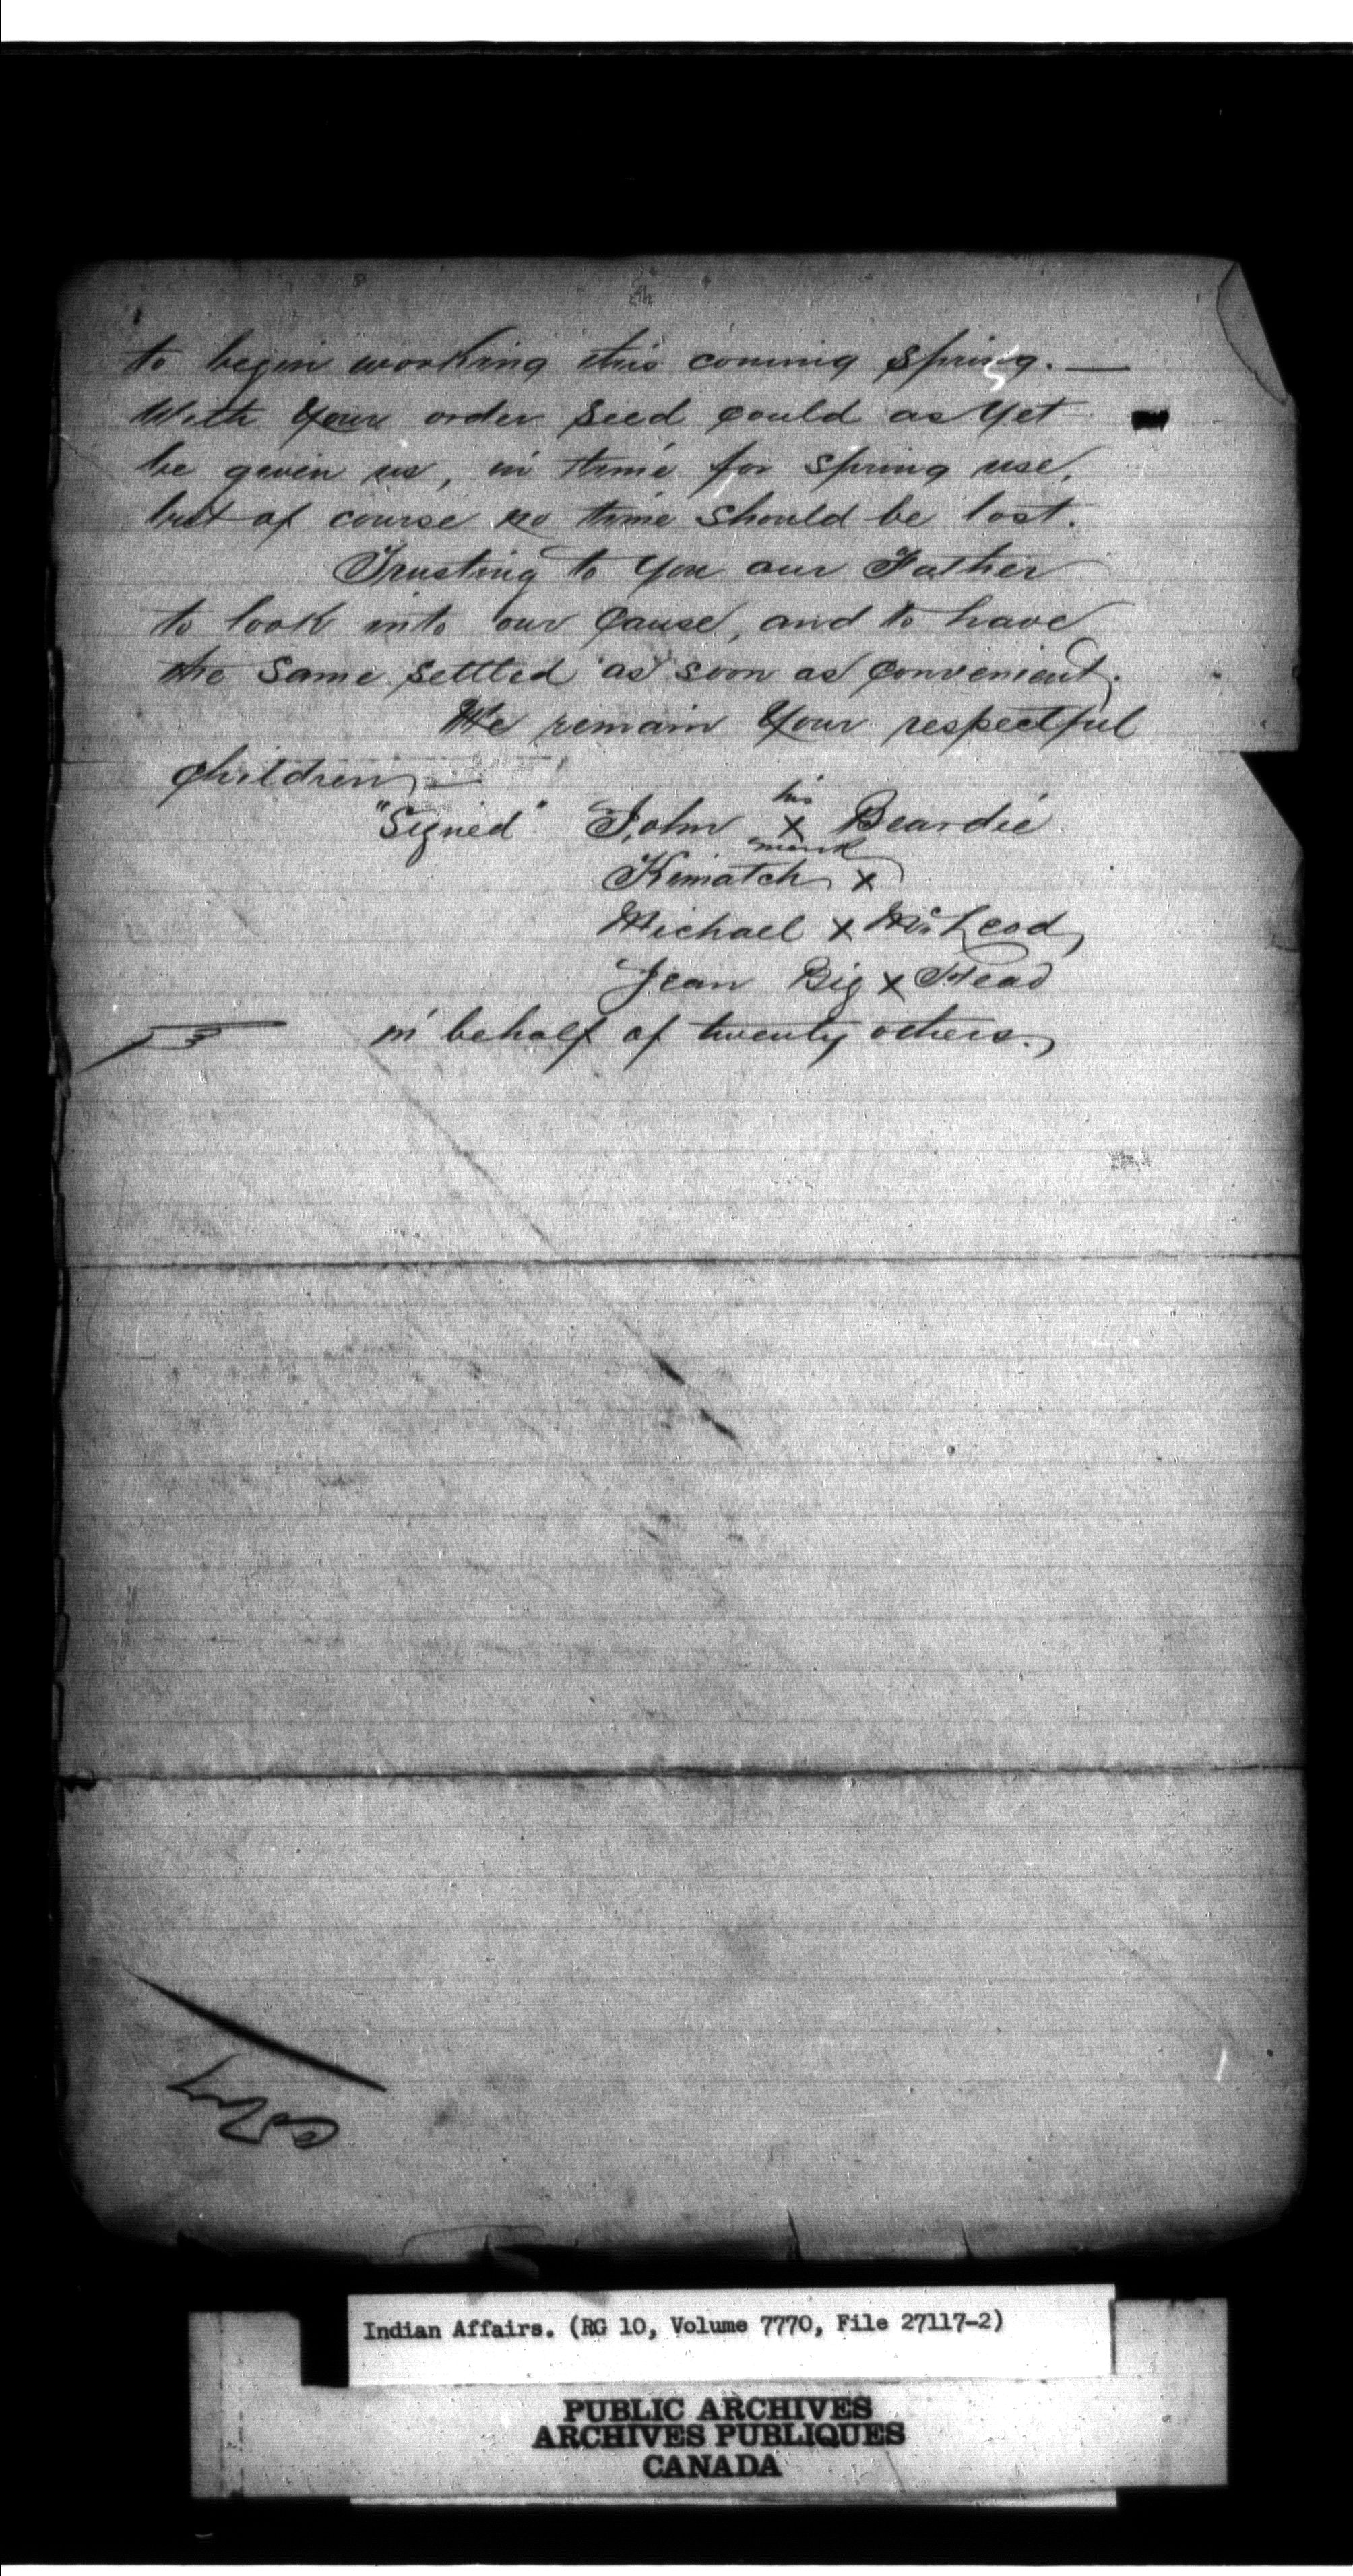 to begin working this coming Spring. —
With Your order Seed Could as Yet
be given us, in time for Spring use,
but of course no time Should be lost.
Trusting to You our Father
to look into our Cause, and to have
the Same Settled as soon as Convenient.
We remain Your respectful
Children, —
"Signed" John his X mark Beardie
Kimatch X
Michael X McLeod,
Jean Big X Head
in behalf of twenty others.,
Indian Affairs. (RG 10, Volume 7770, File 27117-2)
PUBLIC ARCHIVES
ARCHIVES PUBLIQUES
CANADA